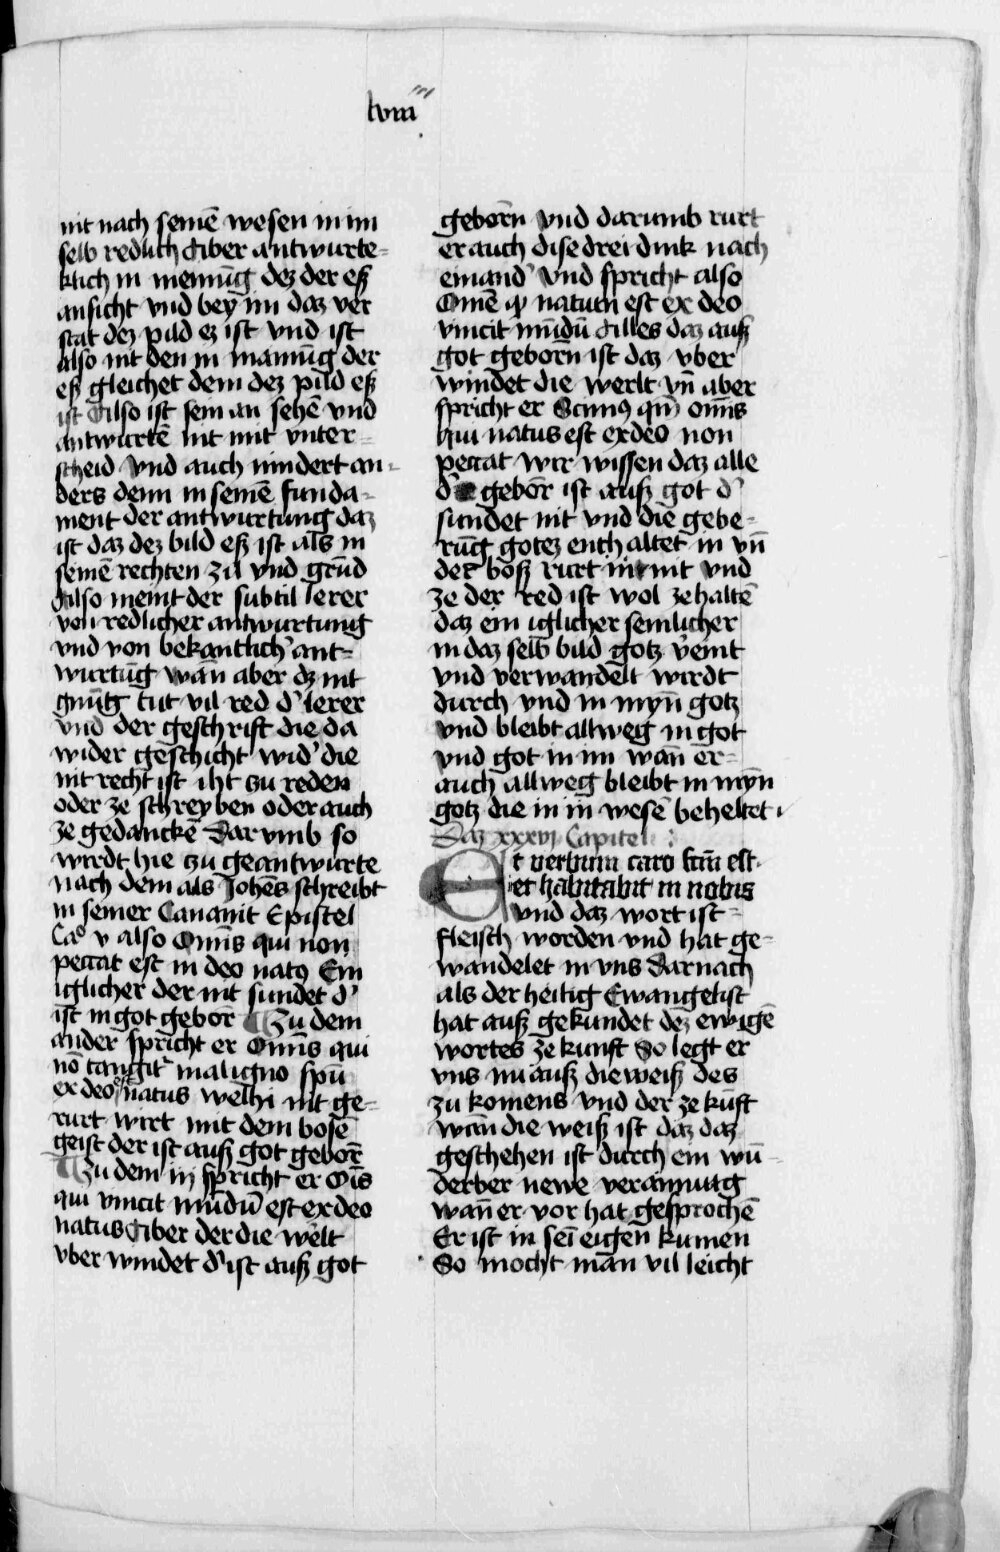 lviiii
nit nach seinē wesen in im
selb redlich Aber antwurte=
klich in meinūg dez der eß
ansicht vnd bey im daz ver
stat dez pild ez ist vnd ist
also nit den in mainūg der
eß gleichet dem dez pild eß
ist Also ist sein an sehē vnd
antwurtē nit mit vnter=
scheid vnd auch nindert an=
ders denn in seinē funda=
ment der antwurtung daz
ist daz dez bild eß ist als in
seinē rechten zu vnd grūd
Also meint der subtil lerer
von redlicher antwurtung
vnd von bekantlich' ant=
wurtūg wān aber dz nit
gnūg tut vil red d' lerer
vnd der geschrift die da
wider geschicht wid' die
nit recht ist iht zu reden
oder ze schreyben oder auch
ze gedanckē Dar vmb so
wirdt hie zu geantwurte
nach dem als Johēs schreibt
in seiner Cananit Epistel
Cao v also Omīs qui non
peccat est in deo natꝯ Ein
iglicher der nit sundet d'
ist in got geborē ¶ Zu dem
ander spricht er Omīs qui
nō tangit' maligno spū
ex deo est natus welhi nit ge=
rurt wirt mit dem bosē
geist der ist auß got geborē
¶ Zu dem iij spricht er Oīs
qui vincit mūdū est ex deo
natus Aber der die welt
vber windet d' ist auß got
geborn vnd darumb rurt
er auch dise drei dink nach
einand' vnd spricht also
Omē qd natum est ex deo
vincit mūdū Alles daz auß
got geborn ist daz vber
windet die werlt vn̄ aber
spricht er Scimꝯ qm̄ omīs
qui natus est ex deo non
peccat wir wissen daz alle
d' geborē ist auß got d'
sundet nit vnd die gebe=
rūg gotez enthaltet in vn̄
der boß rurt in nit vnd
ze der red ist wol ze haltē
daz ein iglicher semlicher
in daz selb bild gotz v'eint
vnd verwandelt wirdt
durch vnd in myn̄ gotz
vnd bleibt allweg in got
vnd got in im wan̄ er=
auch allweg bleibt in myn̄
gotz die in in wesē beheltet
Daz xxxvj Capitel
Et verbum caro fcm̄ est
et habitabit in nobis
vnd daz wort ist=
fleisch worden vnd hat ge=
wandelet in vns Darnach
als der heilig Ewangelist
hat auß gekundet dez ewigē
wortes ze kunft So legt er
vns nu auß die weiß des
zu komens vnd der ze kūft
wān die weiß ist daz daz
geschehen ist durch ein wū=
derber newe verainung
wan̄ er vor hat gesprochē
Er ist in sei̅ eigen kumen
So mocht man vil leicht